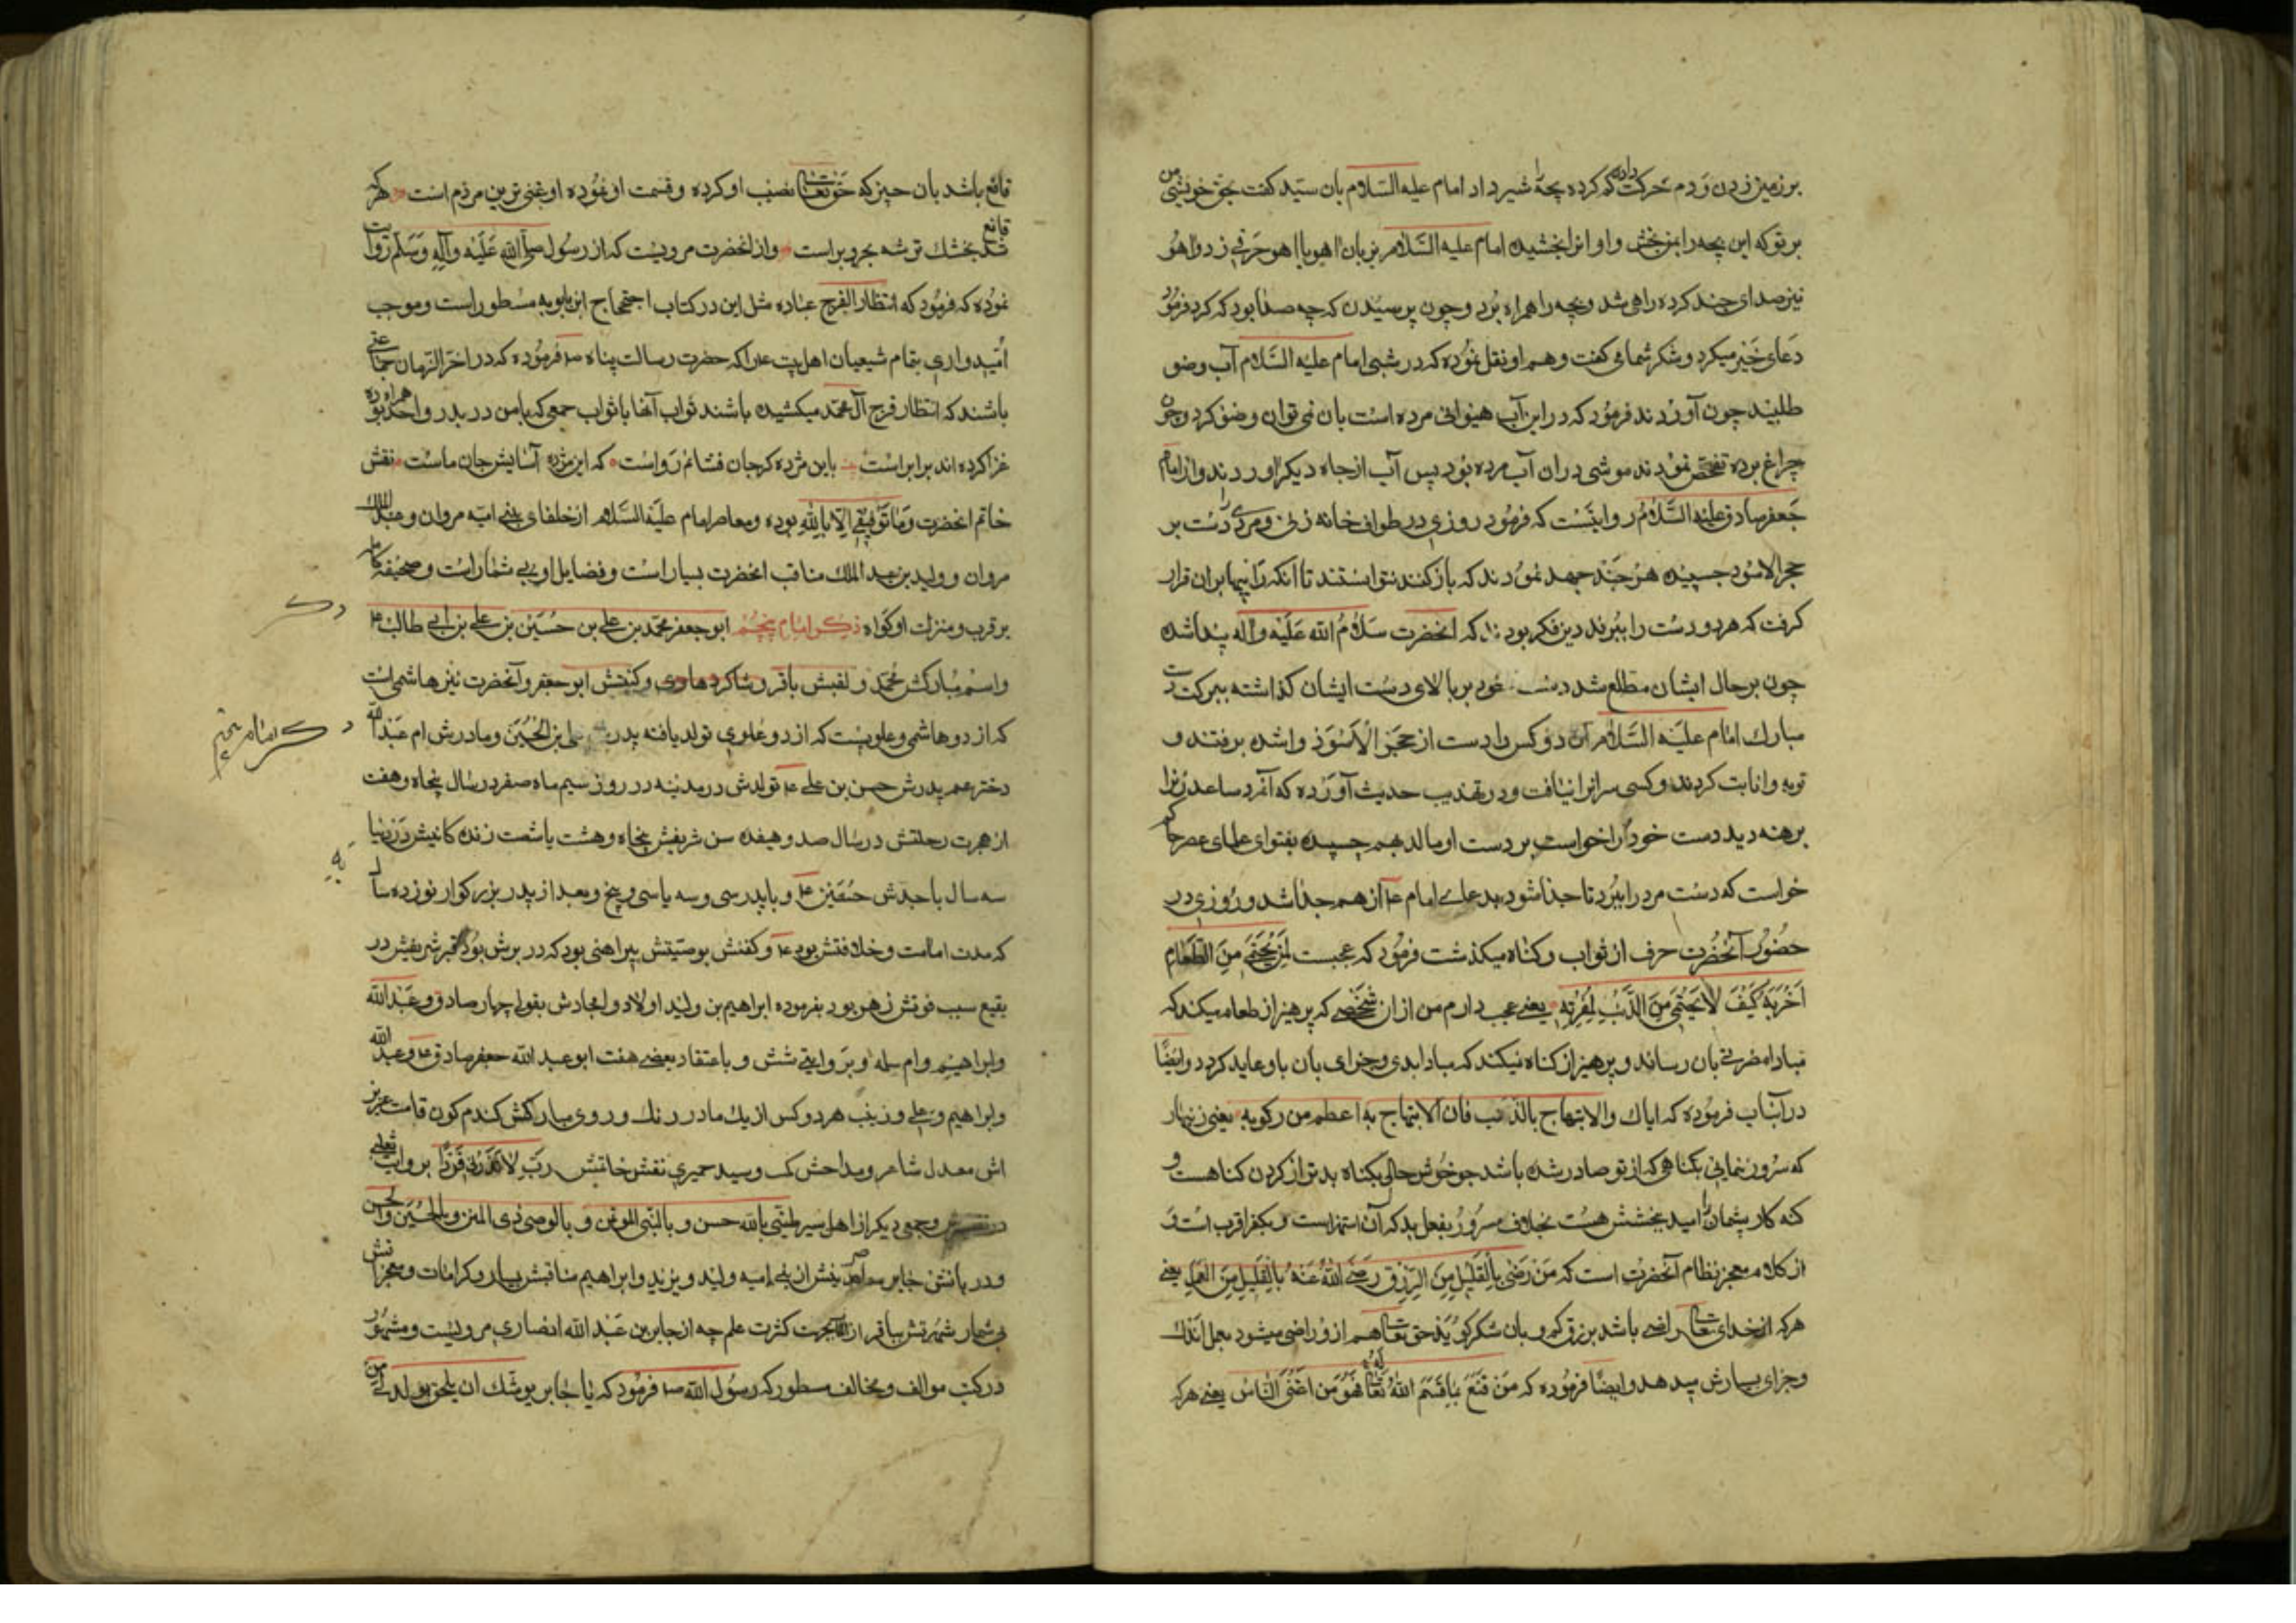 بر زمین زدن و دم حرکت دادن که کرده بچهٔ شیر داد امام علیه السلام بان سید کفت بحق خویشی من
بر تو که این بچه را بمن بخش و او انرا بخشیده امام علیه السّلام بزبان اهو با اهو حرفی زد و اهو
نیز صدای چند کرده راهی شد و بچه را همراه بُرد و چون پرسیدن که چه صدا بود که کرد فرمود
دعای خیر میکرد و شکر شما می کفت و هم او نقل نموده که در شبی امام علیه السّلام آب وضو
طلبید چون آوردند فرمود که در این آب حیوانی مرده است بان نمی توان وضو کرد و چون
چراغ برده تفحص نمودند موشی در ان آب مرده بود پس آب از جاه دیگر اوردند و از امام
جعفر صادق علیه السّلام روایتست که فرمود روزی در طواف خانه زنی و مردی را دست بر
حجر الاسود چسپیده هر چند جهد نمودند که باز کنند نتوانستند تا انکه رایها بران قرار
کرفت که هر دو دست را ببرند درین فکر بودند که انحضرت سلام الله علیه واله پیدا شده
چون بر حال ایشان مطلع شد دست خود بر بالای دست ایشان کذاشته ببرکت دست
مبارک امام علیه السّلام آن دو کس را دست از حجر الاسود وا شده برفتند و
توبه و انابت کردند و کسی سر انرا نیافت و در تهذیب حدیث آورده که آنمرد ساعد زنرا
برهنه دید دست خود را خواست بر دست او مالد بهم چسپیده بفتوای علمای عصر حاکم
خواست که دست مرد را ببرد تا جدا شود بدعای امام ع از هم جدا شد و روزی در
حضور آنحضرت حرف از ثواب و کناه میکذشت فرمود که عجبت لمن یحتمی من الطعام
لمضرته کیف لا یحتمی من الذنب لمعرته یعنی عجب دارم من از ان شخصی که پرهیز از طعام میکند که
مبادا مضرتی بان رساند و پرهیز از کناه نمیکند که مبادا بدی و جزای بان باو عاید کردد و ایضًا
در آنباب فرموده که ایاک والابتهاج بالذنب فان الابتهاج به اعظم من رکوبه یعنی زنهار
که سرور ننمایی بکناهی که از تو صادر شده باشد جو خوش حالی بکناه بدتر از کردن کناهست و
کنه کار پشمان را امید بخشش هست بخلاف مسرور بفعل بد که آن استهزاست و بکفر اقرب است و
از کلام معجز نظام آنحضرت است که من رضی بالقلیل من الرزق رضی الله عنه بالقلیل من العمل یعنی
هر که از خدای تعالی راضی باشد برزق کم و بان شکر کوید حق تعالی هم از و راضی میشود بعمل اندک
و جزای بسیارش میدهد و ایضًا فرموده که من قنع بما قسم الله تعالی له فهو من اغنی الناس یعنی هر که
قانع باشد بان چیز که حق تعالی نصیب او کرده و قسمت او نموده او غنی ترین مردم است هر که
قانع شد بخشک تر شه بحر و بر است و از انحضرت مرویست که از رسول صلی الله علیه وآله وسلم روایت
نموده که فرمود که انتظار الفرج عباده مثل این در کتاب احتجاج ابن بابویه مسطور است و موجب
امیدواری بتمام شیعیان اهل بیت علیهم انکه حضرت رسالت پناه ص فرموده که در اخر الزمان جماعتی
باشند که انتظار فرج آل محمد میکشیده باشند ثواب آنها با ثواب جمعی که با من در بدر و احد همراه بوده
غزا کرده اند برابر است باین مژده کر جان فشانم رواست که این مژده آسایش جان ماست نقش
خاتم انحضرت وما توفیقی الا بالله بوده و معاصر امام علیه السّلام از خلفای بنی امیه مروان و عبد الملک
مروان و ولید بن عبد الملک مناقب انحضرت بسیار است و فضایل او بی شمار است و صحیفه کامله
بر قرب و منزلت او کواه ذکر امام پنجم ابو جعفر محمد بن علی بن حسین بن علی بن ابی طالب ع
واسم مبارکش محمد و لقبش باقر و شاکر و هادی و کنیتش ابو جعفر و آنحضرت نیز هاشمی است
که از دو هاشمی و علویست که از دو علوی تولد یافته پدرش علی بن الحسین و مادرش ام عبد الله
دختر عم پدرش حسن بن علی ع تولدش در مدینه در روز سیم ماه صفر در سال پنجاه و هفت
از هجرت رحلتش در سال صد و هیفده سن شریفش پنجاه و هشت یا شصت زنده کانیش در دنیا
سه سال با جدش حسین ع و با پدر سی و سه یا سی و پنج و بعد از پدر بزرکوار نوزده سال
که مدت امامت و خلافتش بود ع و کفنش بوصیتش پیراهنی بود که در برش بود قبر شریفش در
بقیع سبب فوتش زهر بود بفرموده ابراهیم بن ولید اولاد و امجادش بقولی چهار صادق و عبد الله
وابراهیم و ام سلمه و بروایتی شش و باعتقاد بعضی هفت ابو عبد الله جعفر صادق ع و عبد الله
وابراهیم و علی و زینب هر دو کس از یک مادر رنک و روی مبارکش کندم کون قامت عزیز
اش معدل شاعر و مداحش کمیت و سید حمیری نقش خاتمش رب لا تذرنی فردا بروایت ثعلبی
و جمعی دیکر از اهل سیر ظنّی بالله حسن و بالنبی المؤتمن و بالوصی ذی المنن و بالحسین والحسن
و دربانش جابر معاصرینش از بنی امیه ولید و یزید و ابراهیم مناقبش بسیار و کرامات و معجزاتش
بی شمار شهرتش بباقر از جهت کثرت علم چه از جابر بن عبد الله انصاری مرویست و مشهور
در کتب موالف و مخالف مسطور که رسول الله ص فرمود که یا جابر یوشک ان یلحق بولد لی من
ذکر
ذکر امام پنجم